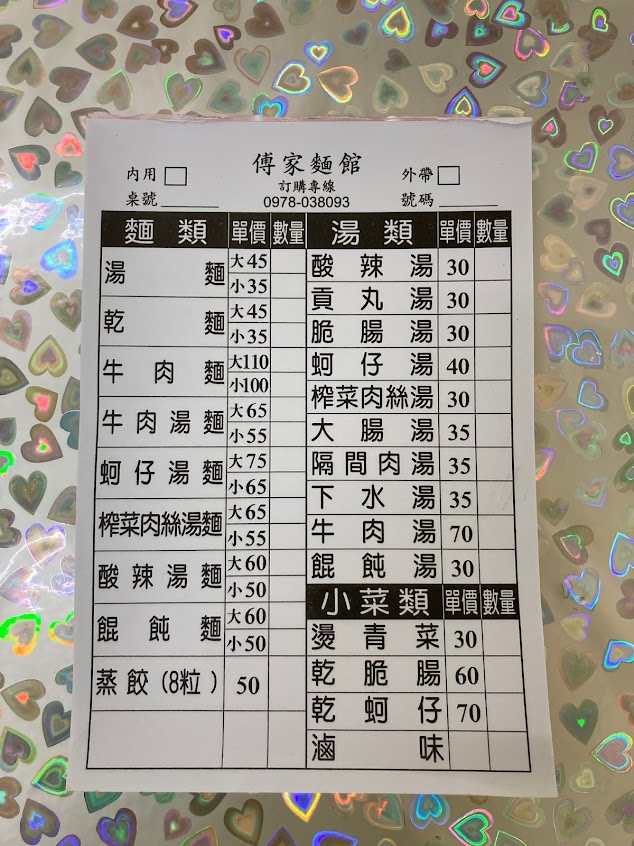 傅家麵館
訂購專線
0978-038093
內用
桌號
外帶
號碼
麵類 單價 數量
湯麵 大45 小35
乾麵 大45 小35
牛肉麵 大110 小100
牛肉湯麵 大65 小55
蚵仔湯麵 大75 小65
榨菜肉絲湯麵 大65 小55
酸辣湯麵 大60 小50
餛飩麵 大60 小50
蒸餃(8粒) 50
湯類 單價 數量
酸辣湯 30
貢丸湯 30
脆腸湯 30
蚵仔湯 40
榨菜肉絲湯 30
大腸湯 35
隔間肉湯 35
下水湯 35
牛肉湯 70
餛飩湯 30
小菜類 單價 數量
燙青菜 30
乾脆腸 60
乾蚵仔 70
滷味